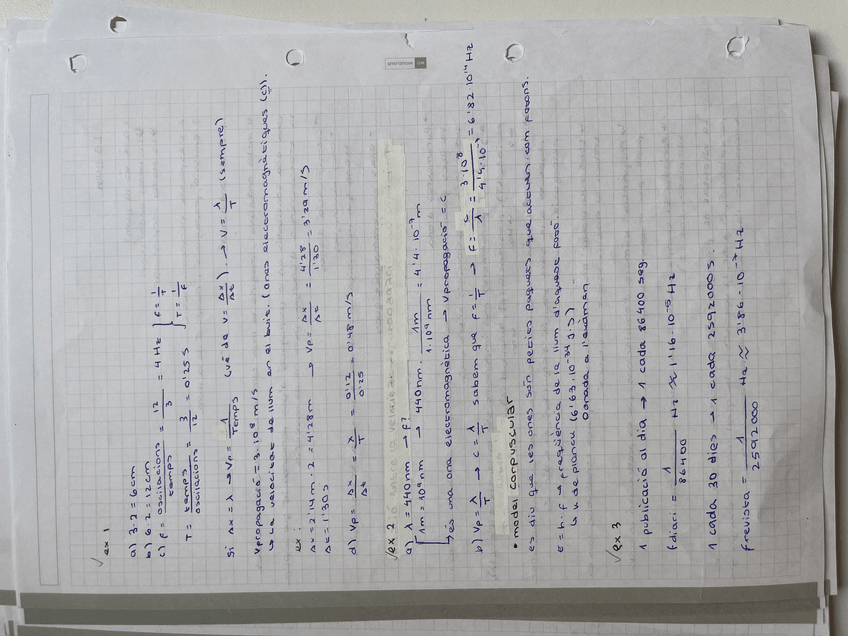 √ ex 1
a) 3·2 = 6cm
b) 6·2 = 12cm
c) f = oscil·lacions / temps = 12 / 3 = 4 Hz } f = 1/T
T = temps / oscil·lacions = 3 / 12 = 0'25 s } T = 1/f
Si Δx = λ → Vp = 1 / Temps (ve de V = Δx/Δt) → V = λ/T (sempre)
Vpropagació = 3·10⁸ m/s
↳ La velocitat de llum en el buit. (ones electromagnètiques (c)).
ex:
Δx = 2'14m · 2 = 4'28m → Vp = Δx/Δt = 4'28 / 1'30 = 3'29 m/s
Δt = 1'30s
d) Vp = Δx/Δt = λ/T = 0'12 / 0'25 = 0'48 m/s
√ ex 2
a) λ = 440nm → f?
1m = 10⁹ nm → 440nm · 1m / 1·10⁹nm = 4'4·10⁻⁷ m
↳ és una ona electromagnètica → Vpropagació = c
b) Vp = λ/T → c = λ/T sabem que f = 1/T → f = c/λ = 3·10⁸ / 4'4·10⁻⁷ = 6'82·10¹⁴ Hz
• model corpuscular
es diu que les ones són petits paquets que actuen com fotons.
E = h·f → freqüència de la llum d'aquest fotó.
↳ k de planck (6'63·10⁻³⁴ J·s)
Donada a l'exàmen
√ ex 3
1 publicació al dia → 1 cada 86400 seg.
f diari = 1 / 86400 Hz ≈ 1'16·10⁻⁵ Hz
1 cada 30 dies → 1 cada 2592000 s.
f revista = 1 / 2592000 Hz ≈ 3'86·10⁻⁷ Hz